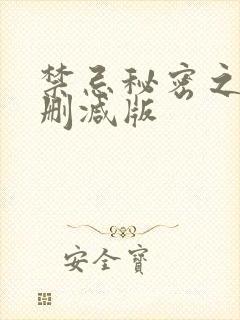 禁忌秘密之
删减版
安全寶